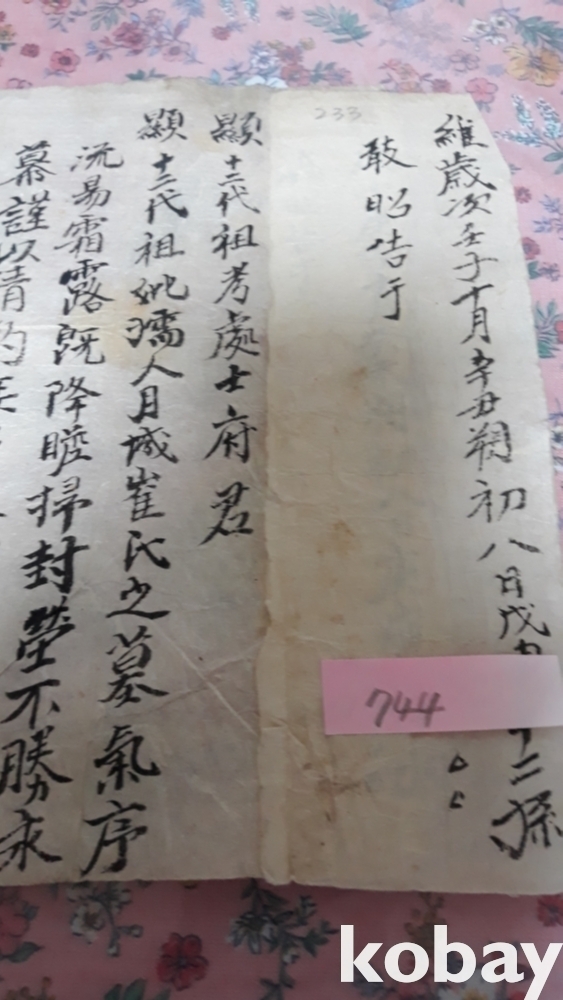 維歲次壬子十月辛丑朔初八日戊 二孫
敢昭告于
顯十二代祖考處士府君
顯十二代祖妣孺人月城崔氏之墓氣序
流易霜露既降瞻掃封塋不勝永
慕謹以清酌
233
744
kobay